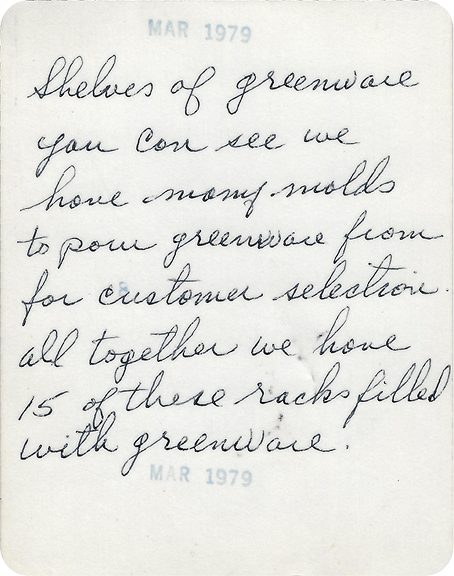 MAR 1979
Shelves of greenware
you can see we
have many molds
to pour greenware from
for customer selection.
all together we have
15 of these racks filled
with greenware.
MAR 1979